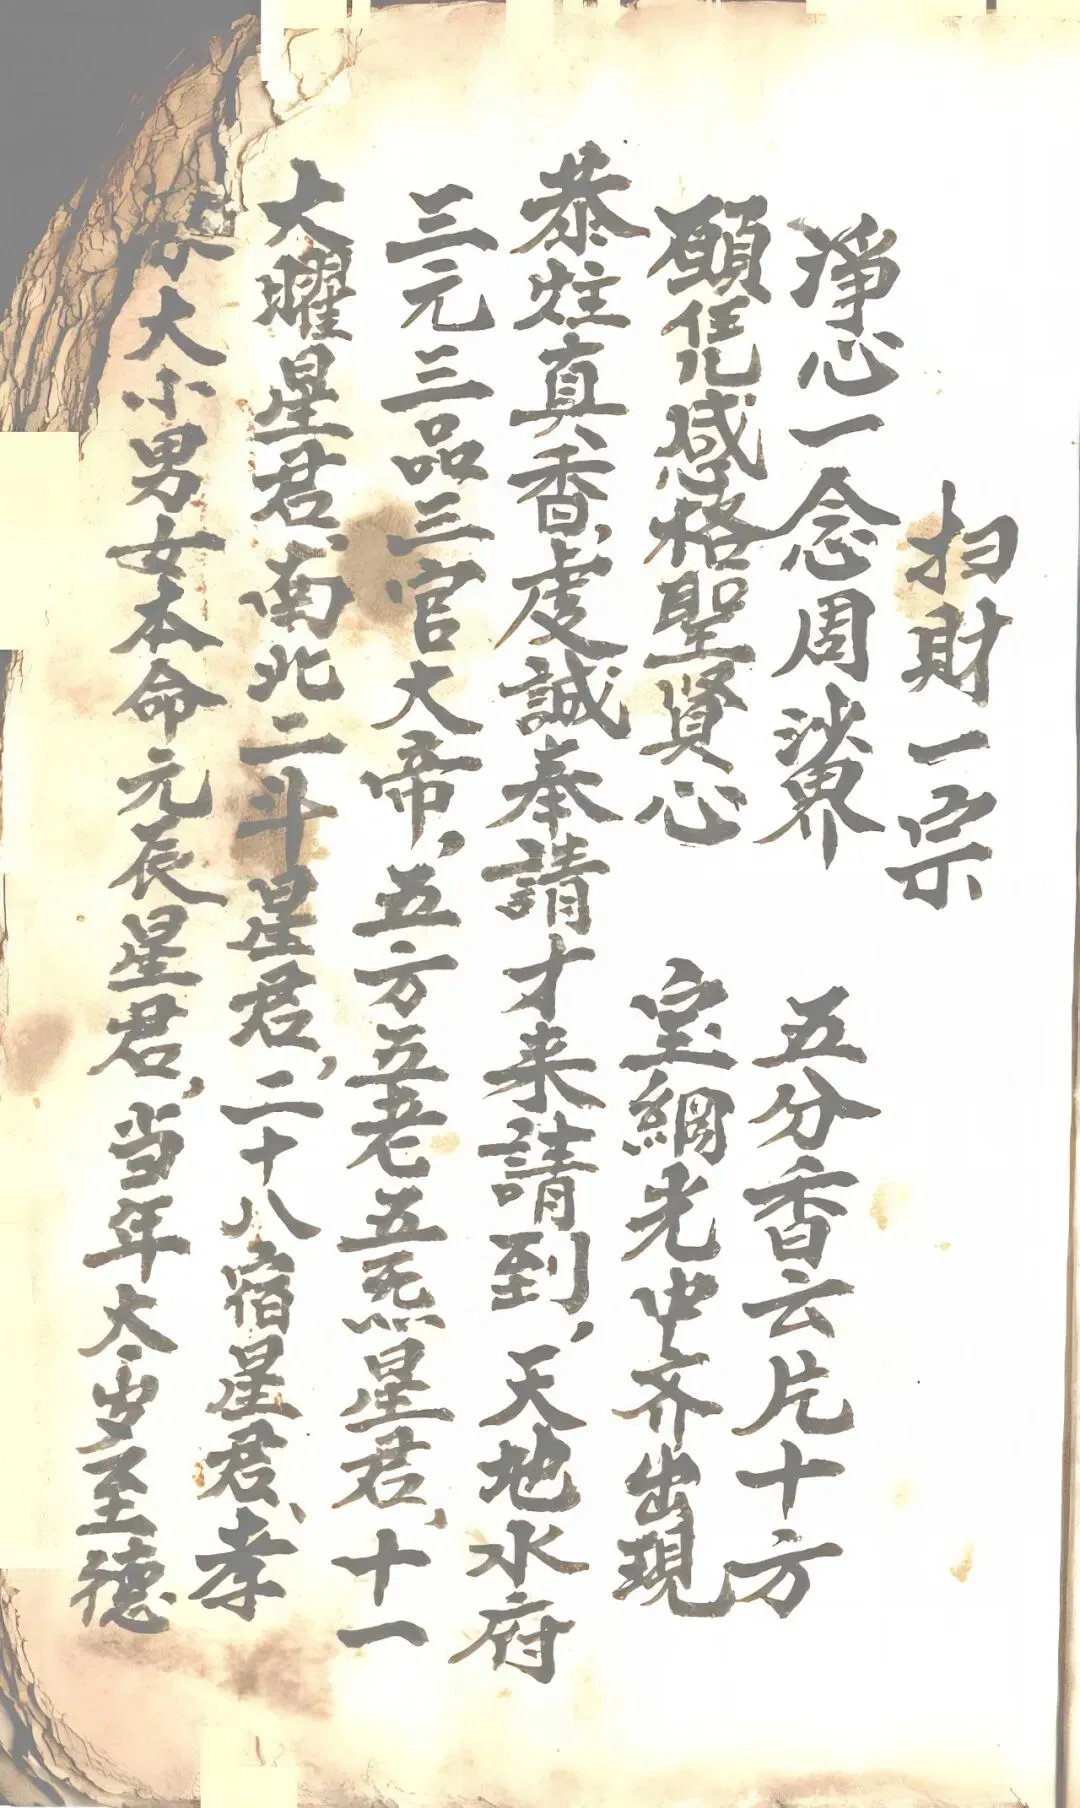 扫財一宗
淨心一念周沙界　五分香云片十方
願凭感格聖賢心　宝網光中齐出現
恭炷真香,虔誠奉請才来請到,天地水府
三元三品三官大帝,五方五老五炁星君、十一
大曜星君、南北二斗星君,二十八宿星君、孝
大小男女本命元辰星君,当年太岁至德